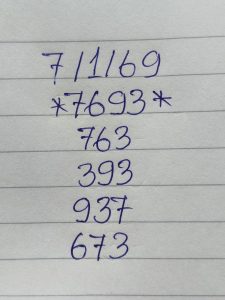 7/1/69
*7693*
763
393
937
673